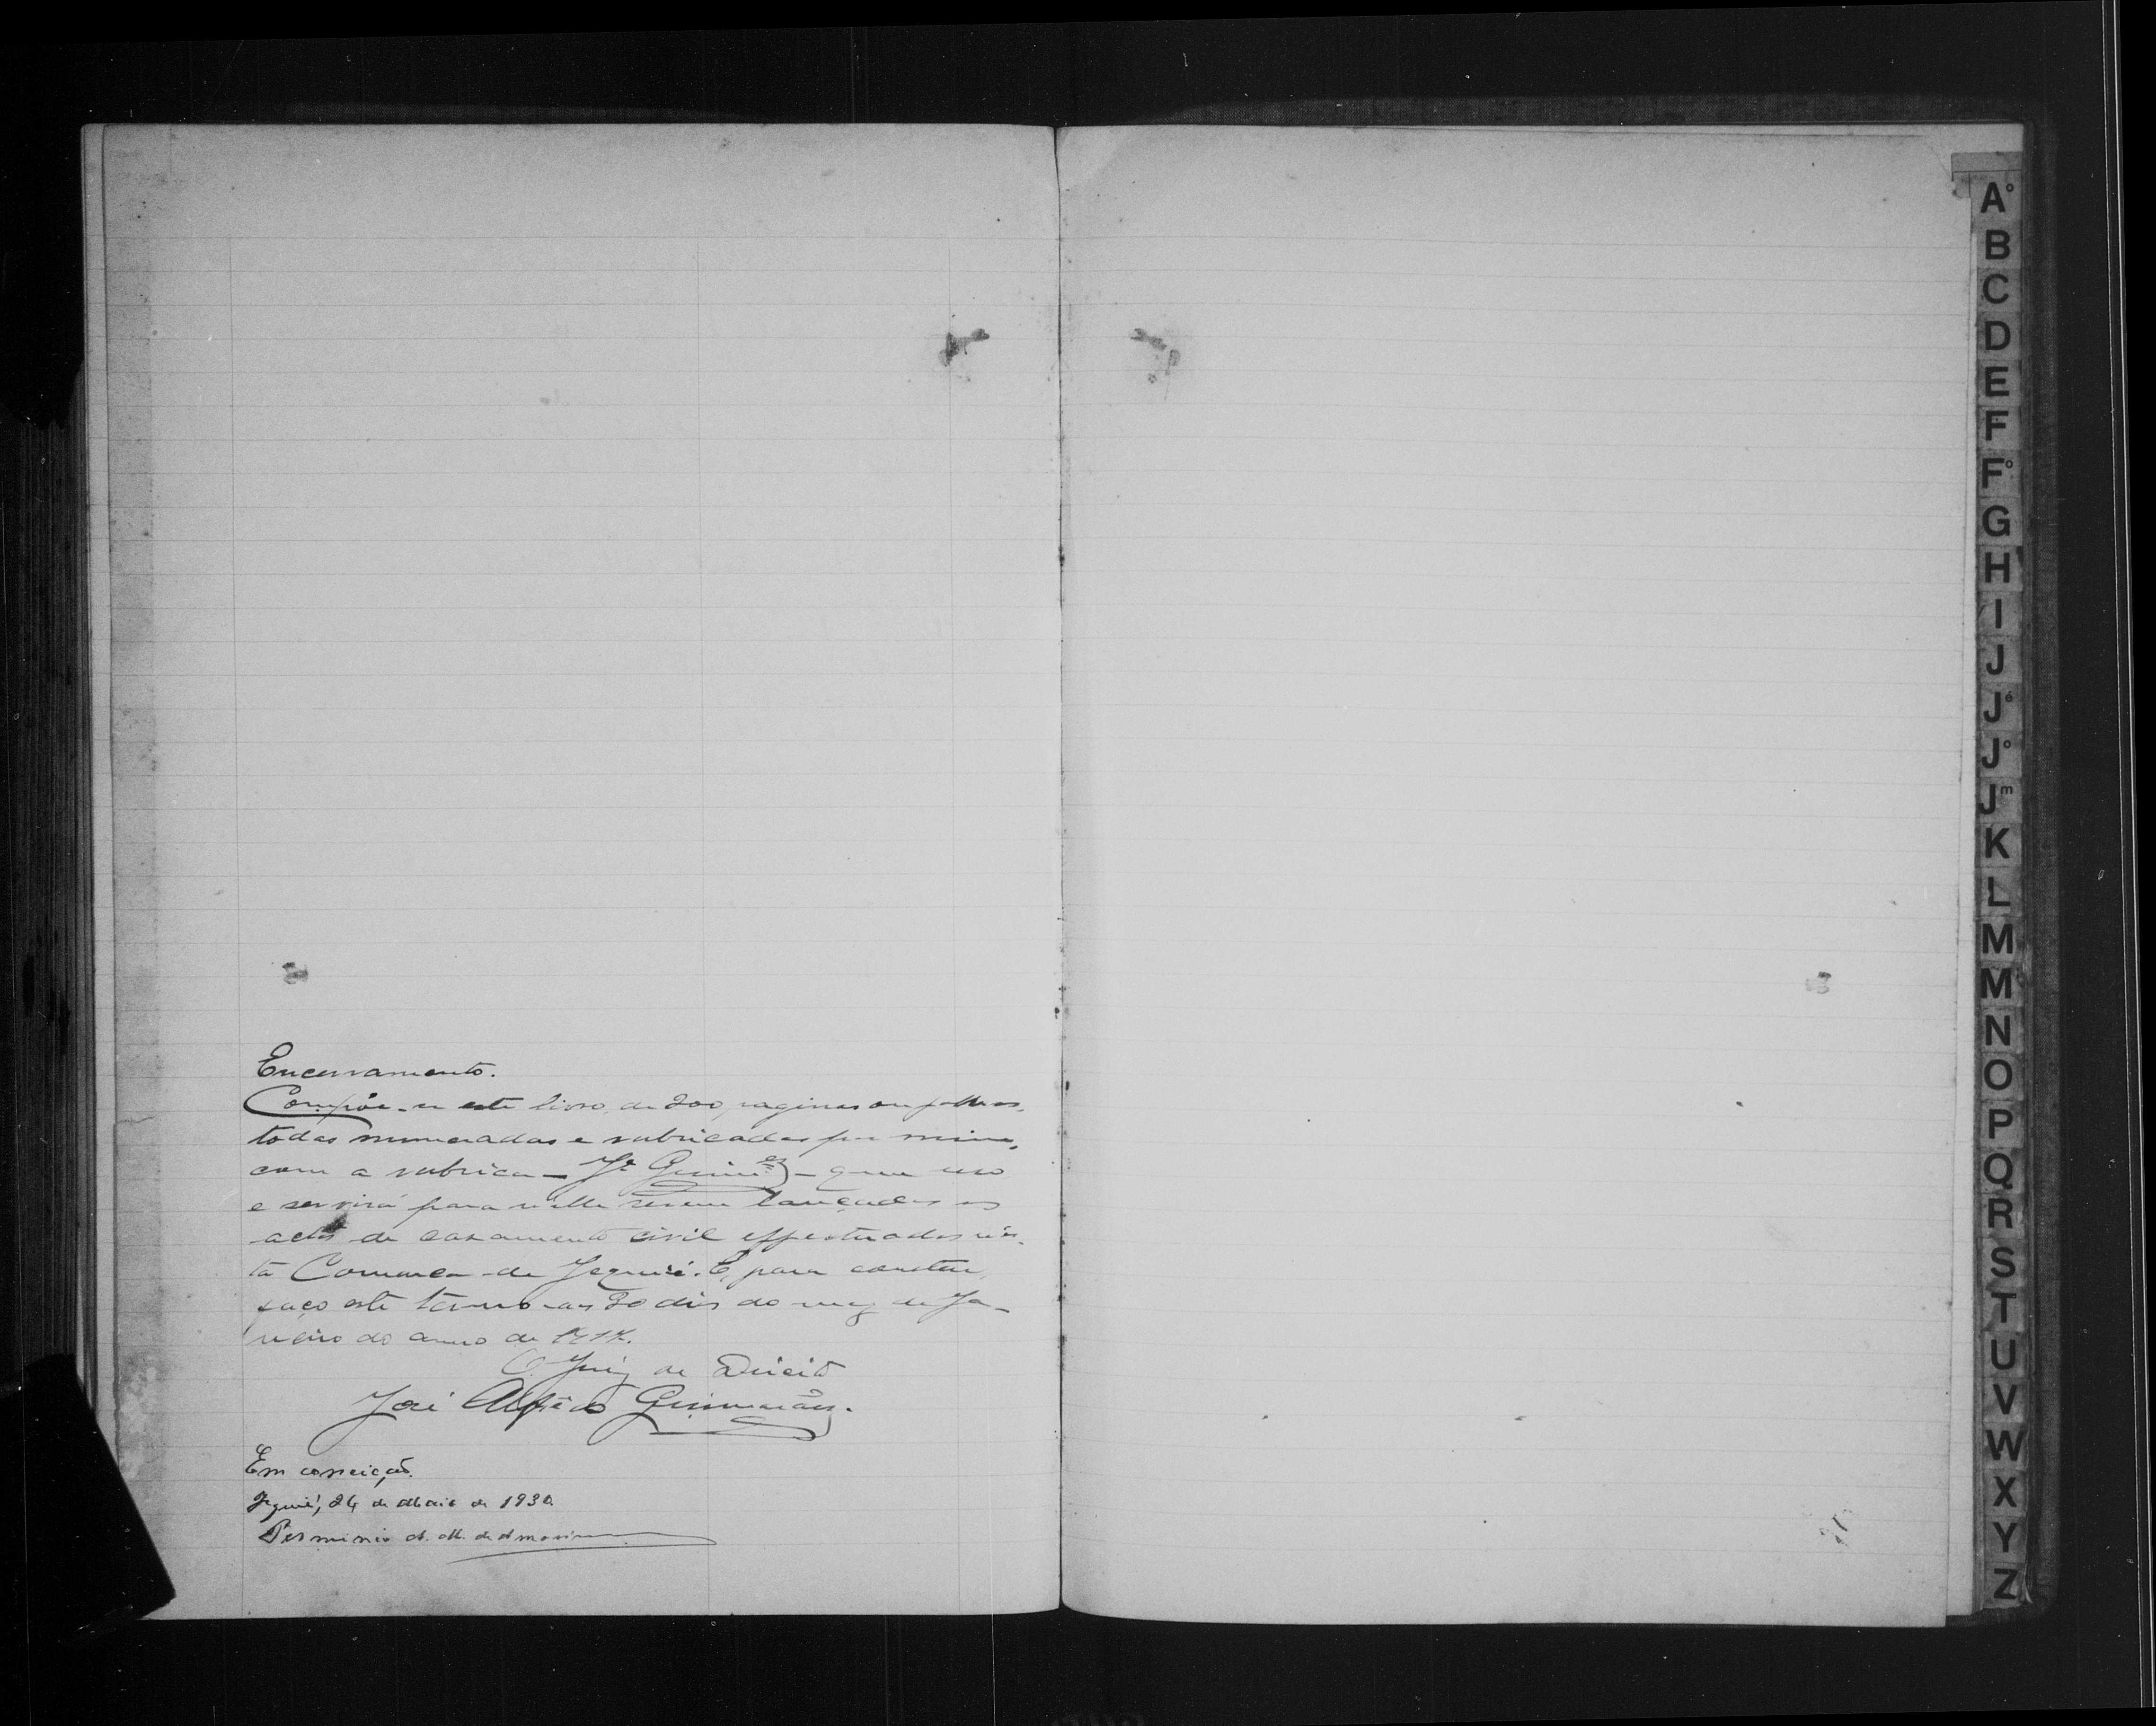 Encerramento.
Compõe-se este livro, de 200 paginas ou folhas,
todas numeradas e rubricadas por mim,
com a rubrica — Jé Guim.es — que uso
e servirá para n'elle serem lançados os
actos de casamento civil effectuados nes-
ta Comarca de Jequié. E, para constar,
faço este termo aos 20 dias do mez de Ja-
neiro do anno de
O Juiz de Direito
José Alfrêdo Guimarães.
Em correição.
Jequié, 24 de Maio de 1930
Perminio A. M. de Amorim
Aº
B
C
D
E
F
Fº
G
H
I
J
Jé
Jº
Jm
K
L
M
M
N
O
P
Q
R
S
T
U
V
W
X
Y
Z